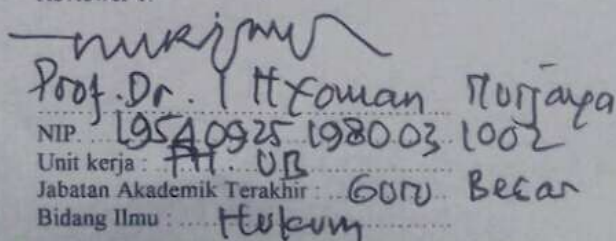 Prof. Dr. I Nyoman Nurjaya
NIP. 19540925 198003 1002
Unit kerja : FH. UB
Jabatan Akademik Terakhir : Guru Besar
Bidang Ilmu : Hukum